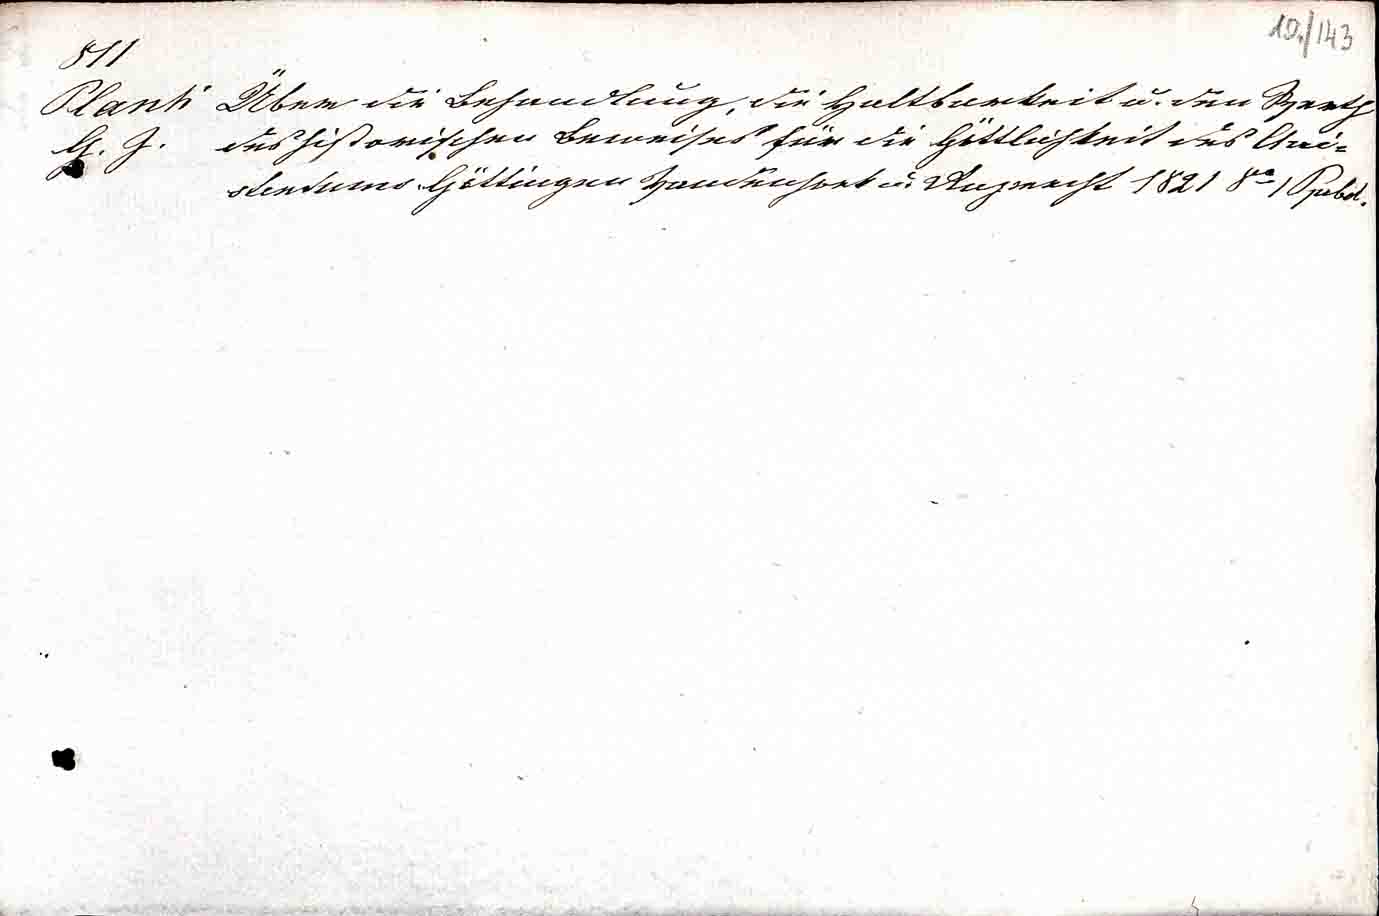 10./143
811
Plank Über die Behandlung, die Haltbarkeit u. den Werth
G. J. des historischen Beweises für die Göttlichkeit des Chri-
stentums. Göttingen Vandenhoek u. Ruprecht 1821 8° 1 Ppbd.